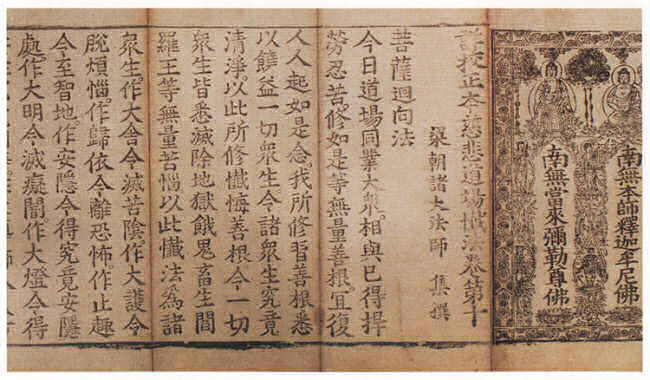 南無本師釋迦牟尼佛
南無當來彌勒尊佛
詳挍正本慈悲道場懺法卷第十
梁朝諸大法師 集撰
菩薩迴向法
今日道場同業大衆。相與已得捍
勞忍苦。修如是等無量善根。宜復
人人起如是念。我所修習善根悉
以饒益一切衆生。令諸衆生究竟
清淨。以此所修懺悔善根。令一切
衆生皆悉滅除地獄餓鬼畜生閻
羅王等無量苦惱。以此懺法爲諸
衆生。作大舍。令滅苦陰。作大護。令
脫煩惱。作歸依。令離恐怖。作止趣
令至智地。作安隱。令得究竟安隱
處。作大明。令滅癡闇。作大燈。令得